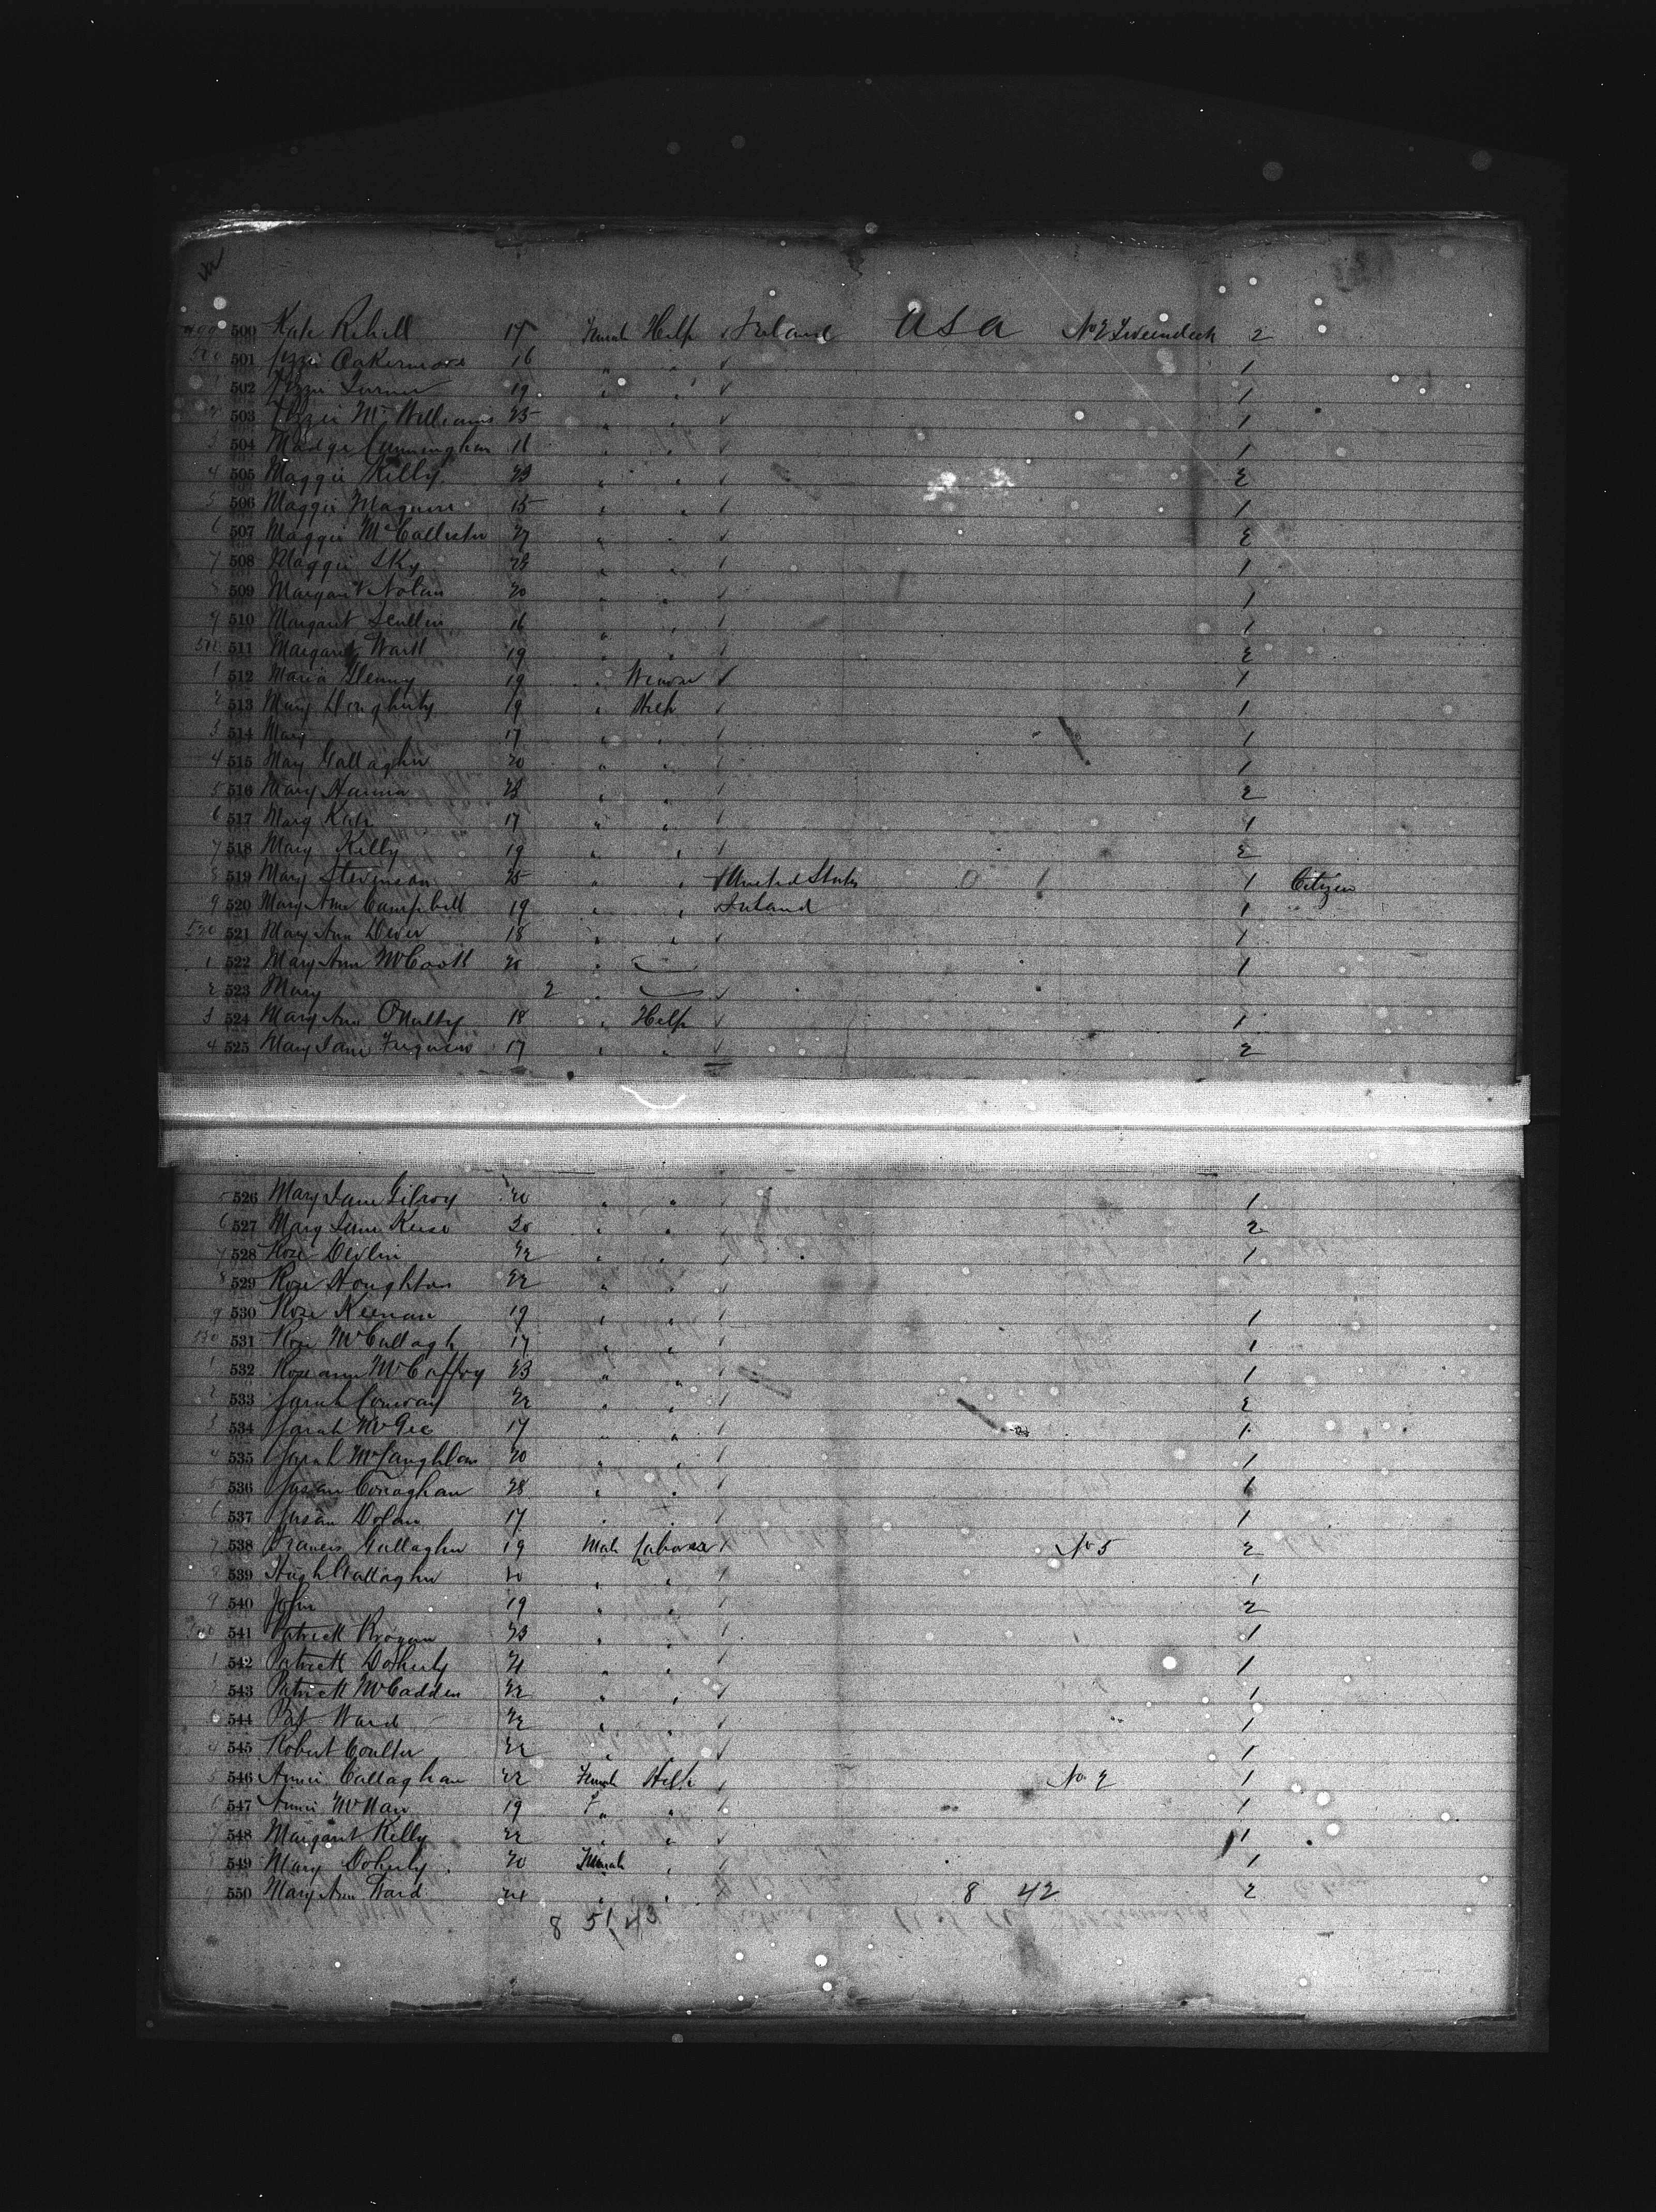 500 Kate Rehill 17 Female Help Ireland USA No 2 Tweendeck 2
501 Lizzie Oakermore 16 " " 1
502 Lizzie Turner 19 " " 1
503 Lizzie McWilliams 25 " 1
504 Madge Cunningham 18 " 1
505 Maggie Kelly 23 " " 2
506 Maggie Maguire 15 " " 1
507 Maggie McCallister 27 " 2
508 Maggie Sky " " 1
509 Margaret Nolan 20 " " 1
510 Margaret Scullin 16 " " 1
511 Margaret Ward 19 " " 2
512 Maria Glenny 19 " 1
513 Mary Dougherty 19 " Help 1
514 Mary 17 " " 1
515 Mary Gallagher 20 " " 1
516 Mary Hanna 23 " " 2
517 Mary Kate 17 " " 1
518 Mary Kelly 19 " " 2
519 Mary Stevenson 25 " " United States 1 Citizen
520 Mary Ann Campbell 19 " " Ireland 1
521 Mary Ann Dever 18 " " 1
522 Mary Ann McCook " 1
523 Mary 2 "
524 Mary Ann 18 " Help 1
525 Mary Jane 17 " " 2
526 Mary Jane Gilroy 20 " " 1
527 Mary Jane " " 2
528 Rose Devlin 22 " " 1
529 Rose Houghton 22 " "
530 Rose Keenan 19 " " 1
531 Rose McCullagh 17 " " 1
532 Rose ann McCaffrey 23 " " 1
533 Sarah Conway 22 " " 2
534 Sarah McGee 17 " " 1
535 Sarah McLaughlan 20 " " 1
536 Susan Conaghan 28 " " 1
537 Susan Dolan 17 " " 1
538 Francis Gallagher 19 Male Laborer No 5 2
539 Hugh Gallagher 20 " " 1
540 John 19 " " 2
541 Patrick Brogan 23 " " 1
542 Patrick Doherty 21 " " 1
543 Patrick McCadden 22 " " 1
544 Pat Ward 22 " " 1
545 Robert Coulter 22 " 1
546 Annie Callaghan 22 Female Help No 2 1
547 Annie 19 " " 1
548 Margaret Kelly 22 " " 1
549 Mary Doherty 20 Female " 1
550 Mary Ann Ward 24 " " 8 42 2
8 51 43